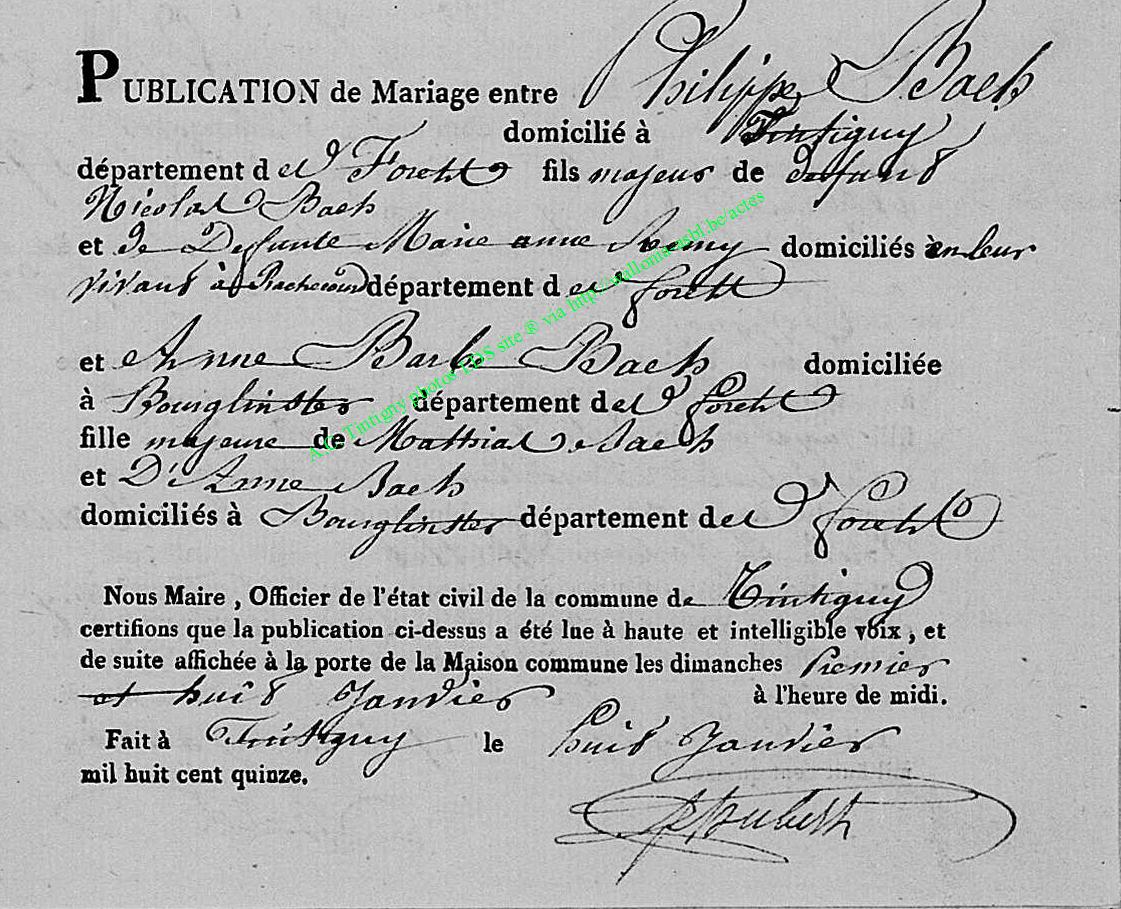 PUBLICATION de Mariage entre Philippe Bach
domicilié à Tintigny
département des Forets fils majeur de defunt
Nicolas Bach
et de Defunte Marie anne Remy domiciliés en leur
vivant à Rachecourt département des forets
et Anne Barbe Bach domiciliée
à Bourglinster département des forets
fille majeure de Mathias Bach
et D'Anne Bach
domiciliés à Bourglinster département des forets
Nous Maire, Officier de l'état civil de la commune de Tintigny
certifions que la publication ci-dessus a été lue à haute et intelligible voix, et
de suite affichée à la porte de la Maison commune les dimanches Premier
et huit Janvier à l'heure de midi.
Fait à Tintigny le huit Janvier
mil huit cent quinze.
A.C. Tintigny photos LDS site ® via http://